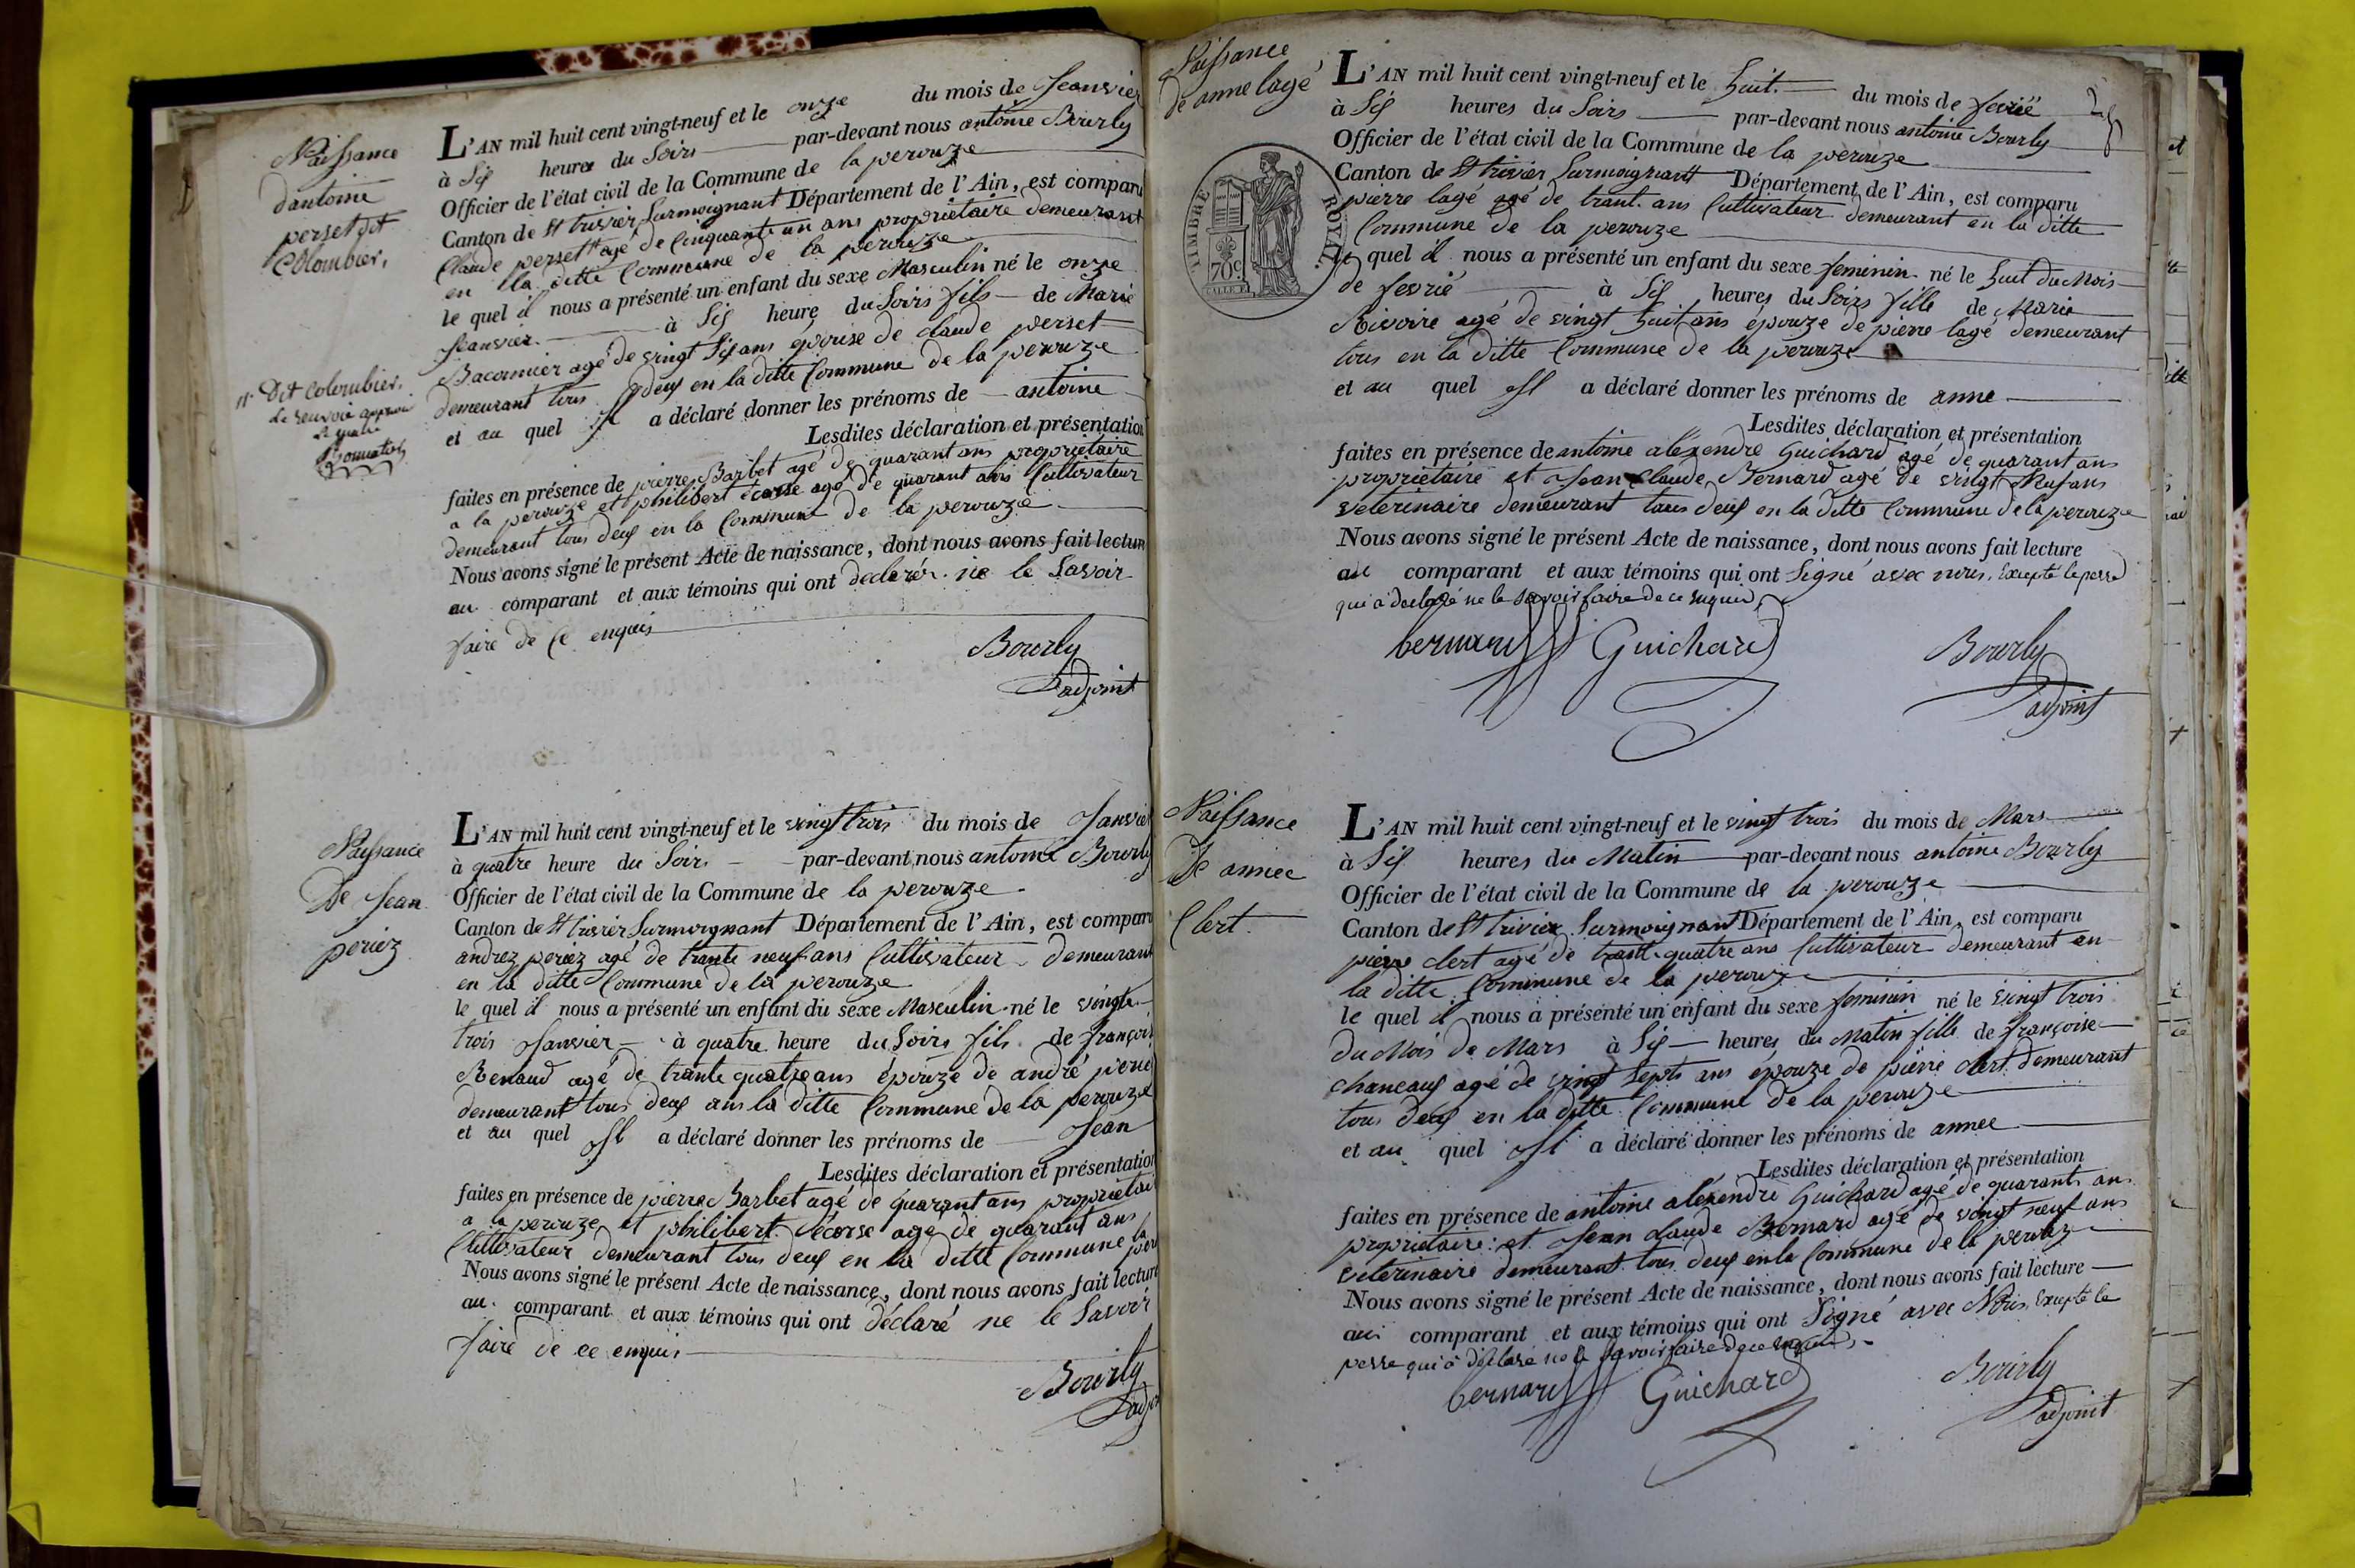 Naissance
dantoine
perset dit
Colombier.
L'AN mil huit cent vingt-neuf et le onze du mois de Jeanvier
à Six heures du Soirs par-devant nous antoine Bourly
Officier de l'état civil de la Commune de la perouze
Canton de St trivier Surmoignant Département de l'Ain, est comparu
Claude perset agé de Cinquante un ans propriétaire demeurant
en la ditte Commune de la perouze
le quel il nous a présenté un enfant du sexe Masculin né le onze
Jeanvier à Six heure du Soirs fils de Marie
Bacornier agé de vingt Six ans épouse de claude perset
demeurant tous deux en la ditte Commune de la perouze
et au quel Il a déclaré donner les prénoms de antoine
Lesdites déclaration et présentation
faites en présence de pierre Barbet agé de quarant ans propriétaire
a la perouze et philibert écorse agé de quarant ans Cultivateur
demeurant tous deux en la Commune de la perouze
Nous avons signé le présent Acte de naissance, dont nous avons fait lecture
au comparant et aux témoins qui ont declarér ne le Savoir
faire de Ce enquis
Bourly
adjoint
Dit Colombier.
Le renvoi approuvé
Naissance
De Jean
periez
L'AN mil huit cent vingt-neuf et le vingt trois du mois de Janvier
à quatre heure du Soir par-devant nous antoine Bourly
Officier de l'état civil de la Commune de la perouze
Canton de St trivier Surmoignant Département de l'Ain, est comparu
andrez periez agé de trante neuf ans Cultivateur demeurant
en la ditte Commune de la perouze
le quel il nous a présenté un enfant du sexe Masculin né le vingte
trois Janvier à quatre heure du Soirs fils de françois
Renaud agé de trante quatre ans épouze de andré perie
demeurant tous deux ans la ditte Commune de la perouze
et au quel Il a déclaré donner les prénoms de Jean
Lesdites déclaration et présentation
faites en présence de pierre Barbet agé de quarant ans proprietai
a la perouze et philibert écorse agé de quarant ans
Cultivateur demeurant tous deux en la ditte Commune la per
Nous avons signé le présent Acte de naissance, dont nous avons fait lecture
au comparant et aux témoins qui ont déclaré ne le Savoir
faire de ce enquis
Bourly
adjoi
Naissance
de anne lagé
L'AN mil huit cent vingt-neuf et le huit du mois de fevrié
à Six heures du Soirs par-devant nous antoine Bourly
Officier de l'état civil de la Commune de la perouze
Canton de St trivier Surmoignant Département de l'Ain, est comparu
pierre lagé agé de trant ans Cultivateur demeurant en la ditte
Commune de la perouze
le quel il nous a présenté un enfant du sexe feminin né le huit du Mois
de fevrié à Six heures du Soirs fille de Marie
Rivoire agé de vingt huit ans épouze de pierre lagé demeurant
tous en la ditte Commune de la perouze
et au quel Il a déclaré donner les prénoms de anne
Lesdites déclaration et présentation
faites en présence de antoine aléxendre Guichard agé de quarant ans
propriétaire et Jean Claude Bernard agé de vingt Neuf ans
veterinaire demeurant tous deux en la ditte Commune de la perouze
Nous avons signé le présent Acte de naissance, dont nous avons fait lecture
au comparant et aux témoins qui ont Signé avec nous. Excepté le perre
qui a declaré ne le Savoir faire de ce enquis
bernard Guichard Bourly
adjoint
TIMBRE ROYAL
70c
Naissance
De annee
Clert.
L'AN mil huit cent vingt-neuf et le vingt trois du mois de Mars
à Six heures du Matin par-devant nous antoine Bourly
Officier de l'état civil de la Commune de la perouze
Canton de St trivier Surmoignant Département de l'Ain, est comparu
pierre clert agé de trant quatre ans Cultivateur demeurant en
la ditte Commune de la perouze
le quel il nous a présenté un enfant du sexe feminin né le vingt trois
du Mois de Mars à Six heures du Matin fille de françoise
chaneaux agé de vingt Septs ans épouze de pierre clert demeurant
tous deux en la ditte Commune de la perouze
et au quel Il a déclaré donner les prénoms de annee
Lesdites déclaration et présentation
faites en présence de antoine aléxendre Guichard agé de quarants ans
propriétaire et Jean claude Bernard agé de vingt neuf ans
veterinaire demeurant tous deux en la Commune de la perouze
Nous avons signé le présent Acte de naissance, dont nous avons fait lecture
aui comparant et aux témoins qui ont Signé avec Nous Excepté le
perre qui a déclaré ne le Savoir faire de ce enquis
bernard Guichard Bourly
adjoint